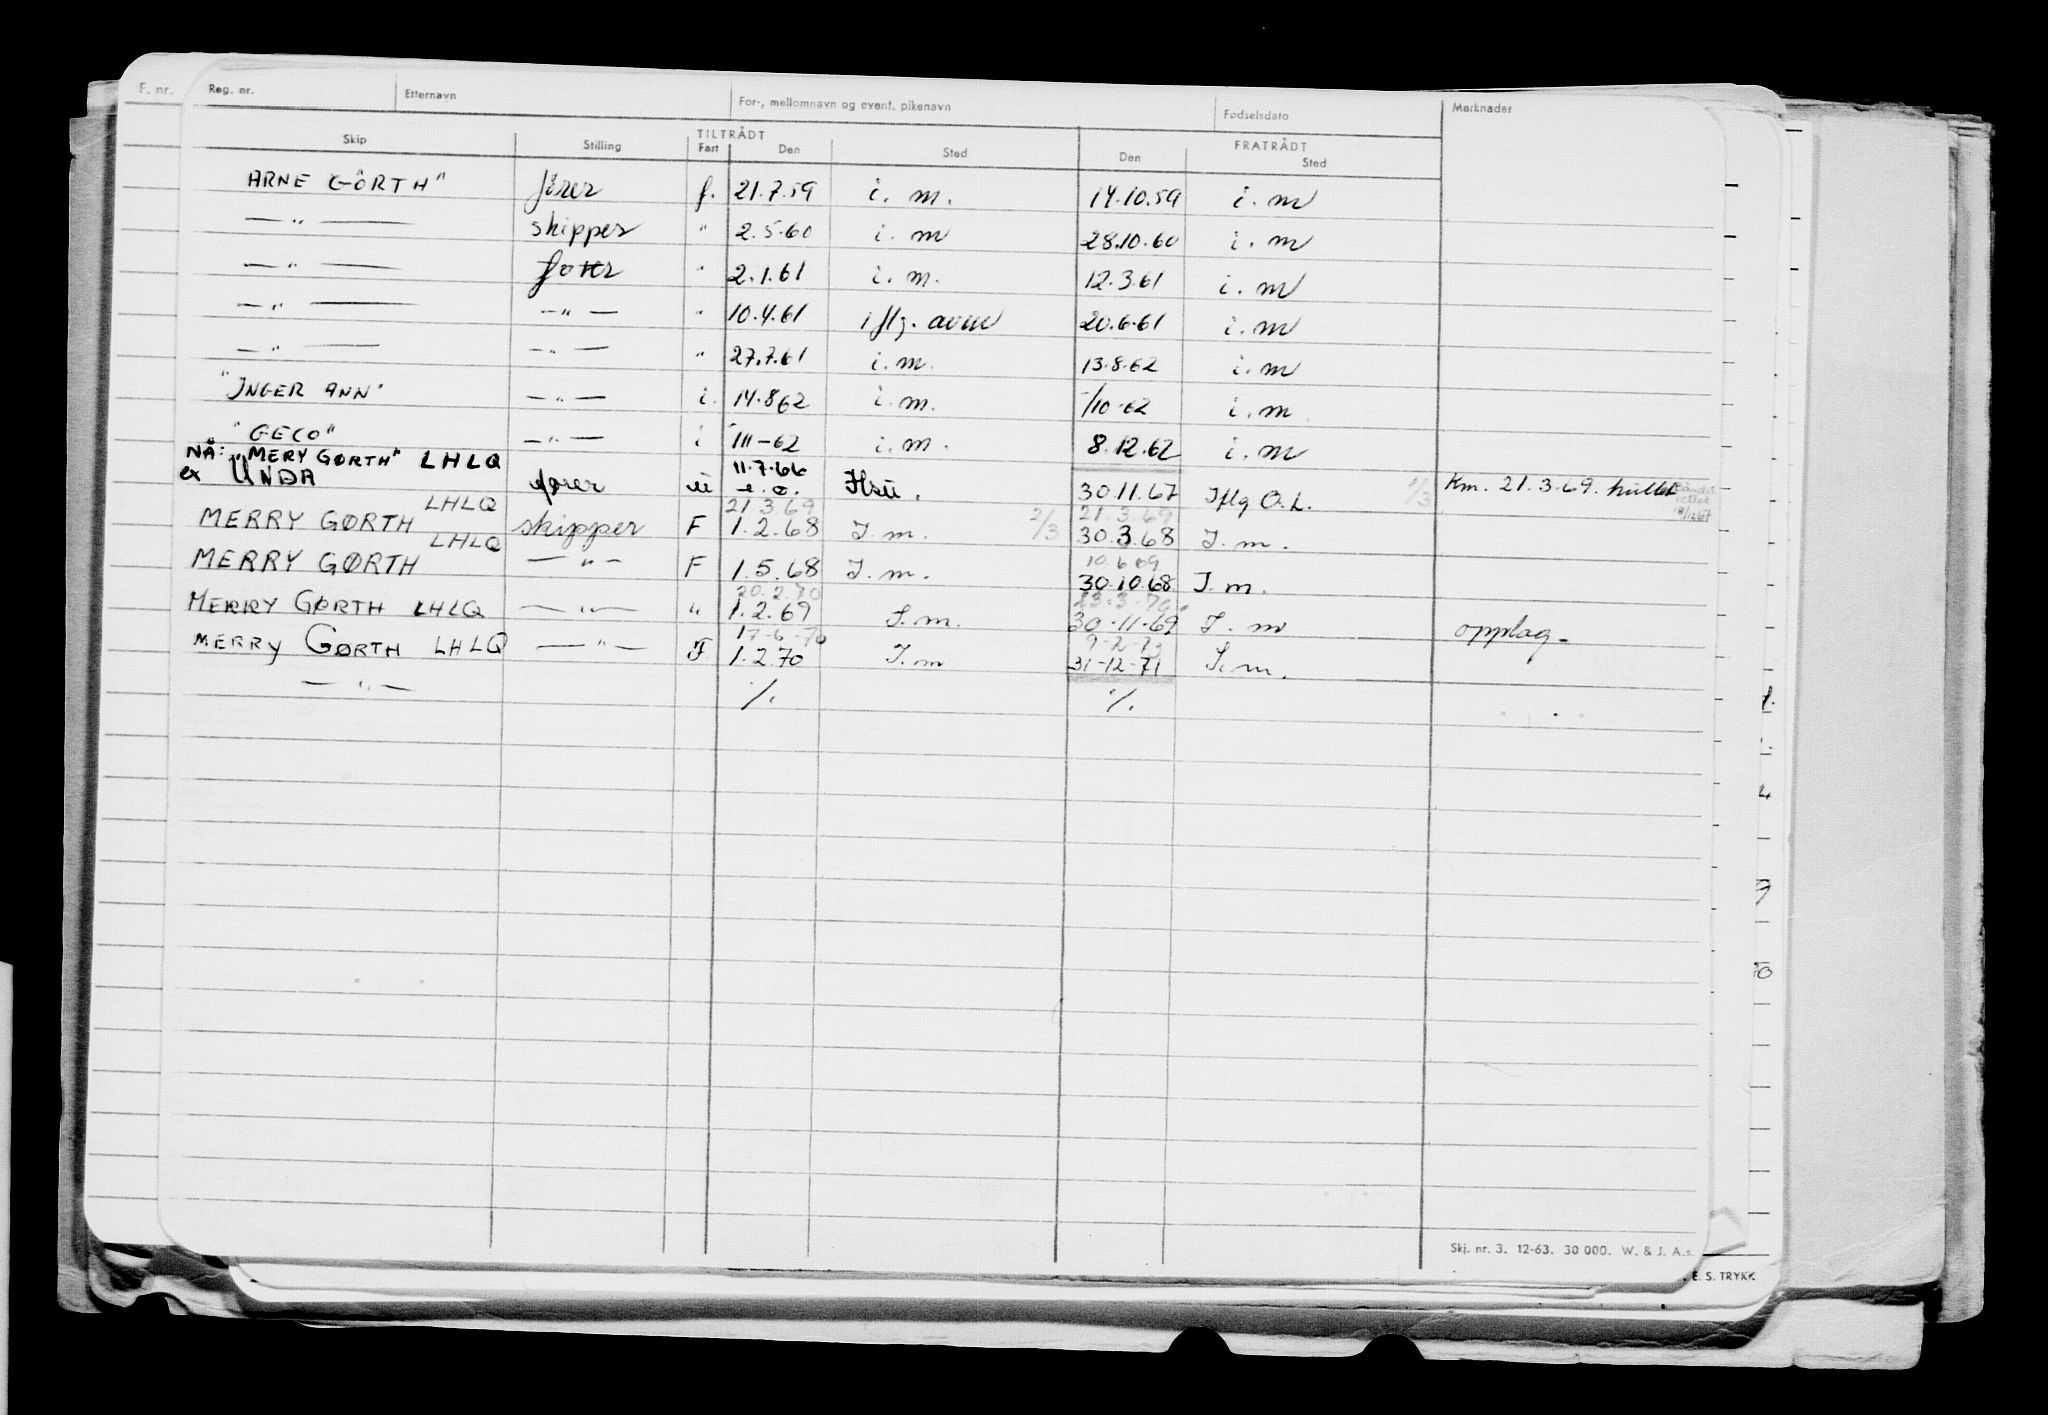 F. nr. Reg. nr. Etternavn For-, mellomnavn og event. pikenavn Fødselsdato Merknader
TILTRÅDT FRATRÅDT
Skip Stilling Fart Den Sted Den Sted
ARNE GÖRTH" fører f. 21.7.59 i. m. 14.10.59 i. m
— " — skipper " 2.5.60 i. m 28.10.60 i. m
— " — fører " 2.1.61 i. m. 12.3.61 i. m
— " — — " — " 10.4.61 iflg. 20.6.61 i. m
— " — — " — " 27.7.61 i. m. 13.8.62 i. m
"INGER ANN" — " — i. 14.862 i. m. -/10-62 i. m.
"GECO" — " — i 1/11-62 i. m. 8.12.62 i. m
NÅ: "MERY GØRTH" LHLQ 11.7.66
ex UNDA fører u 30.11.67 Iflg O.L. 1/3 Km. 21.3.69.
LHLQ 21 3.69 21.3.69
MERRY GØRTH skipper F 1.2.68 I. m. 2/3 30.3.68 I. m.
LHLQ 10.6.69
MERRY GØRTH — " — F 1.5.68 I. m. 30.10.68 I. m.
20.2.70 23.3.70
MERRY GØRTH LHLQ — " — " 1.2.69 I. m. 30.11.69 I. m opplag-
17-6-70 9-2-73
MERRY GØRTH LHLQ — " — F 1.2.70 I. m 31-12-71 I. m.
— " — /. /.
Skj. nr. 3. 12-63. 30 000. W. & J. A.s.
E. S. TRYKK